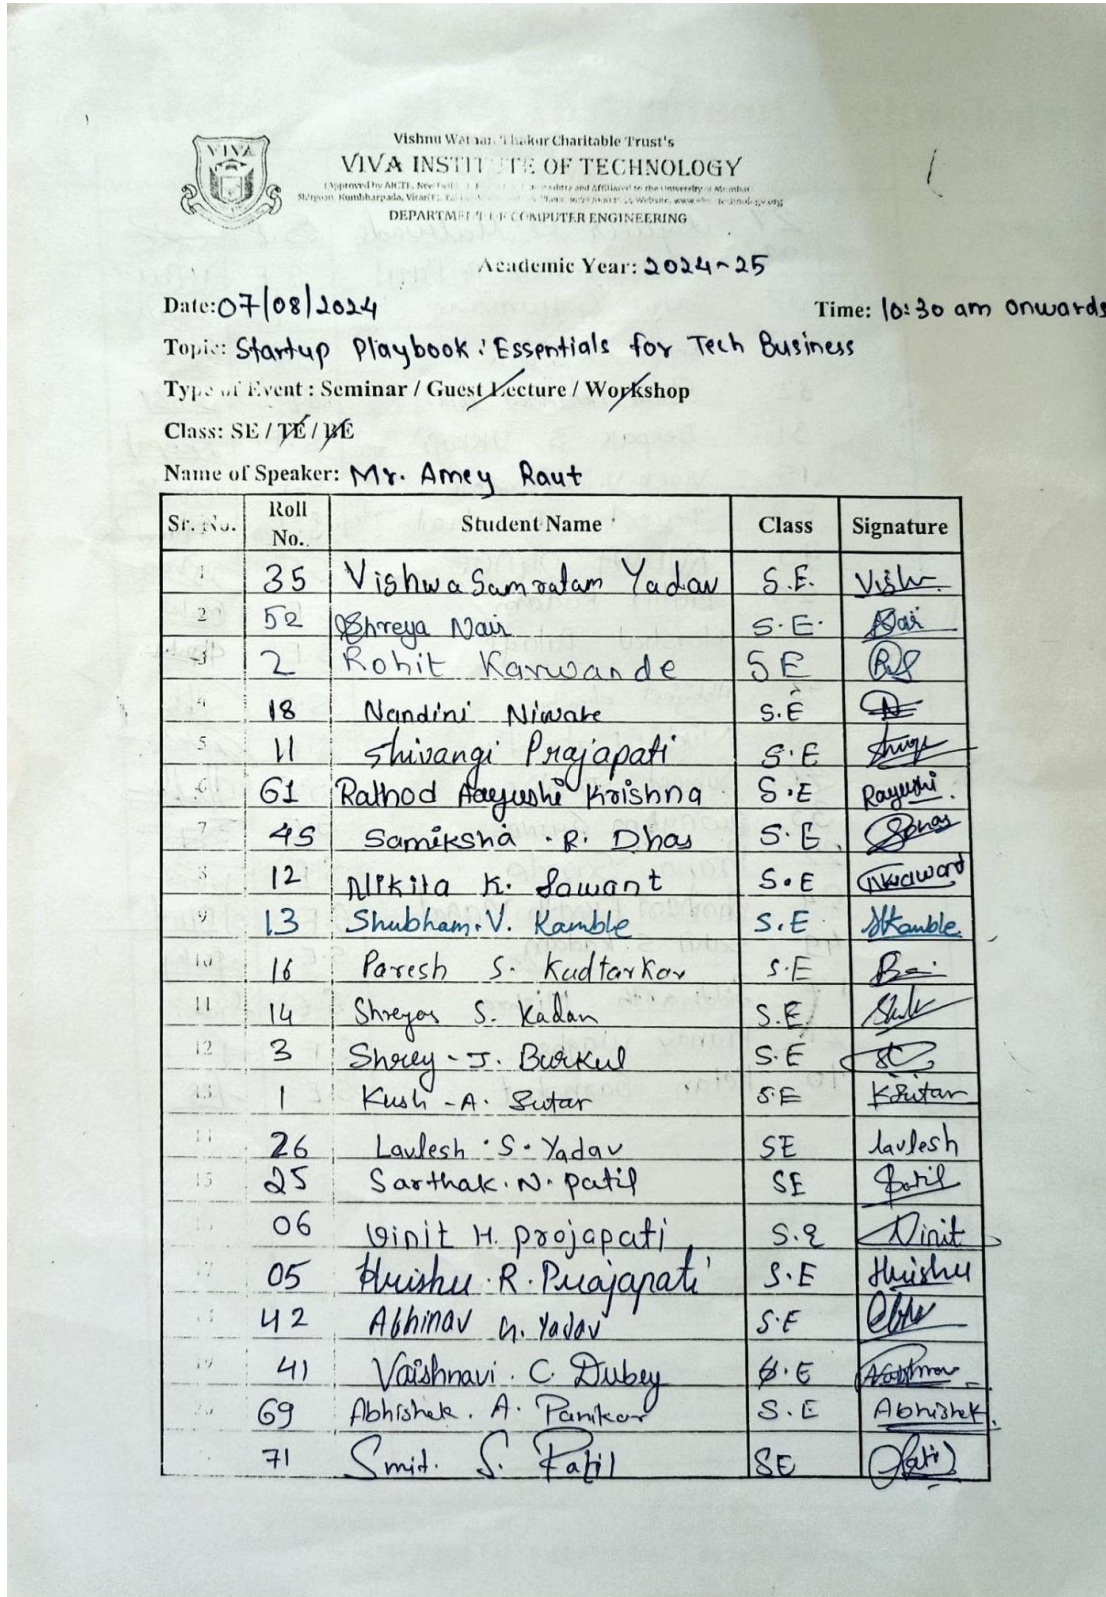 VIVA
Vishnu Waman Thakur Charitable Trust's
VIVA INSTITUTE OF TECHNOLOGY
DEPARTMENT OF COMPUTER ENGINEERING
Academic Year: 2024-25
Date: 07/08/2024 Time: 10:30 am onwards
Topic: Startup Playbook: Essentials for Tech Business
Type of Event : Seminar / Guest Lecture / Workshop
Class: SE / TE / BE
Name of Speaker: Mr. Amey Raut
Sr. No. Roll No. Student Name Class Signature
1 35 Vishwa Samratam Yadav S.E. Vish
2 52 Shreya Nair S.E. Nair
3 2 Rohit Karwande SE
4 18 Nandini Niwate S.E
5 11 Shivangi Prajapati S.E
6 61 Rathod Aayushi Krishna S.E Rayushi.
7 45 Samiksha . R. Dhas S.E. Dhas
8 12 Nikita K. Sawant S.E
9 13 Shubham. V. Kamble S.E SKamble
10 16 Paresh S. Kudtarkar S.E
11 14 Shreyas S. Kadam S.E
12 3 Shrey - J. Burkul S.E
13 1 Kush - A. Sutar S.E KSutar
14 26 Lavlesh . S. Yadav SE lavlesh
15 25 Sarthak. N. Patil SE Patil
06 Vinit H. Prajapati S.E Vinit
17 05 Hrishu . R. Prajapati S.E Hrishu
42 Abhinav G. Yadav S.E
19 41 Vaishnavi . C. Dubey S.E
20 69 Abhishek. A. Panikar S.E Abhishek.
71 Smit. S. Patil SE Patil